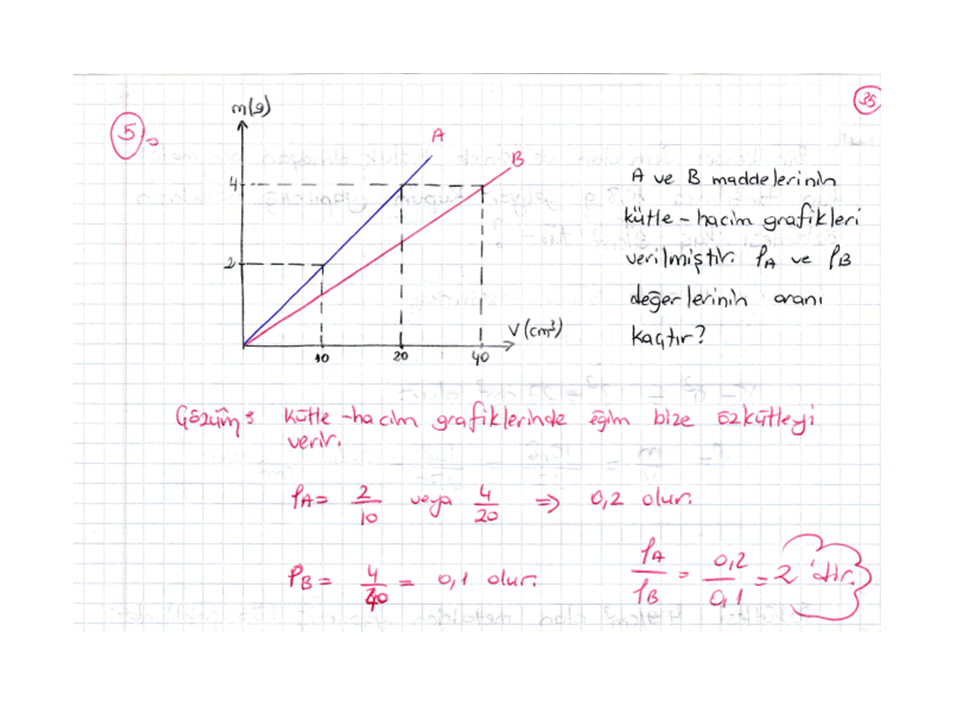 35
5.
m(g)
A
B
4
2
10
20
40
V (cm³)
A ve B maddelerinin
kütle-hacim grafikleri
verilmiştir. ρA ve ρB
değerlerinin oranı
kaçtır?
Çözüm: Kütle-hacim grafiklerinde eğim bize özkütleyi
verir.
ρA = 2/10 veya 4/20 ⇒ 0,2 olur.
ρB = 4/40 = 0,1 olur.
ρA/ρB = 0,2/0,1 = 2'dir.